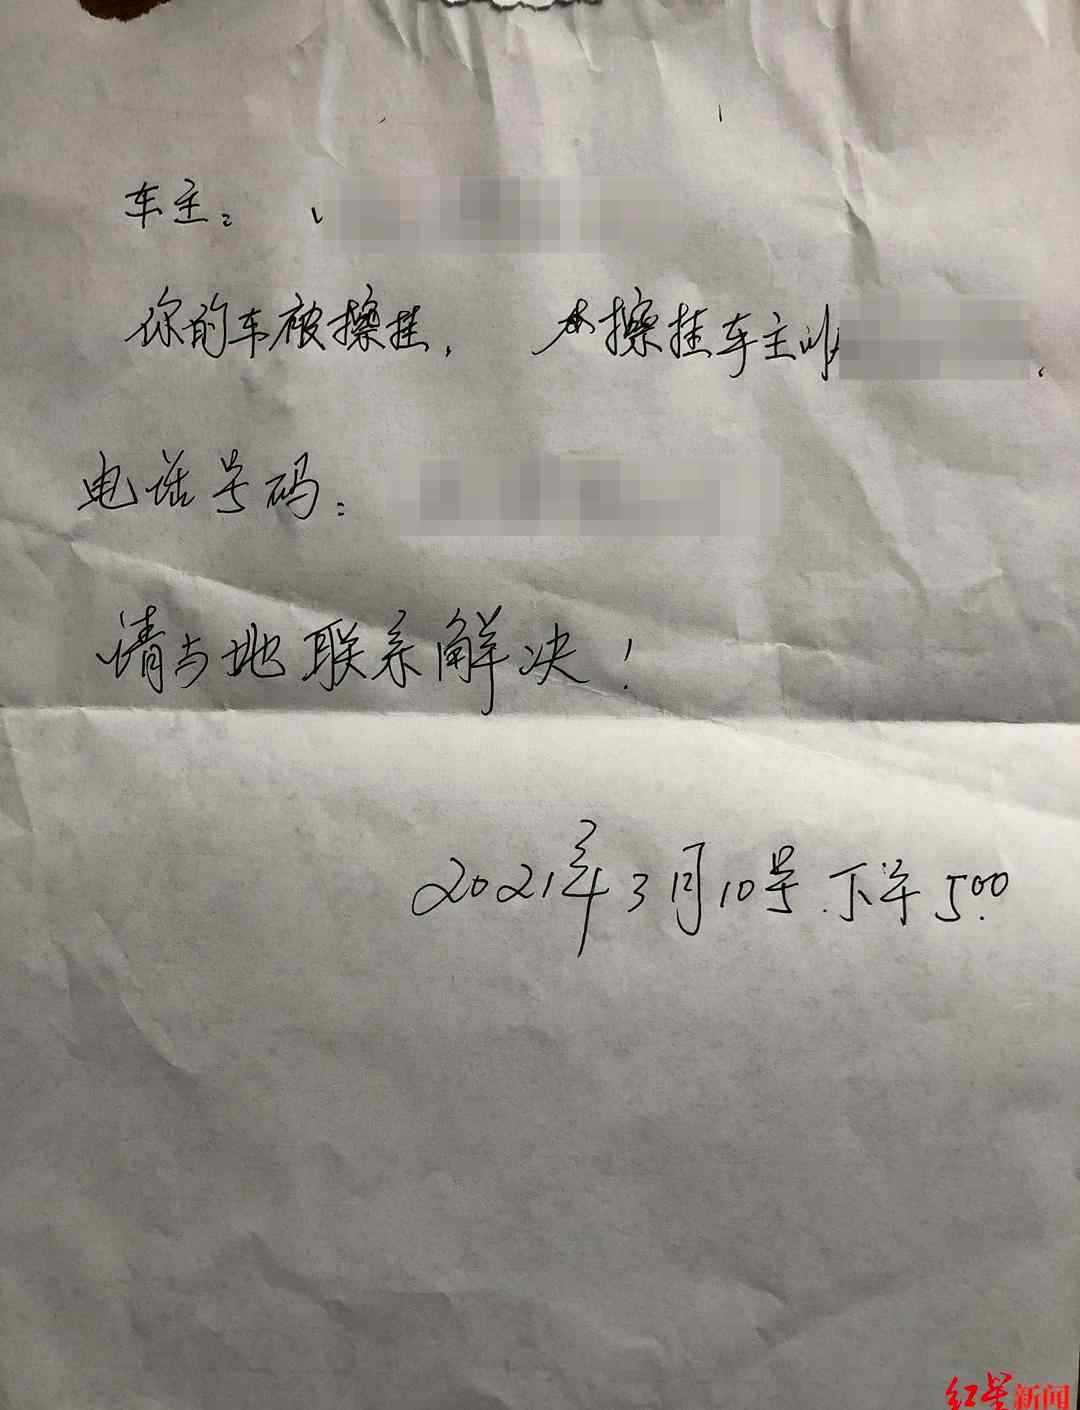 车主：
你的车被擦挂， 擦挂车主川
电话号码：
请与她联系解决！
2021年3月10号.下午5:00
红星新闻